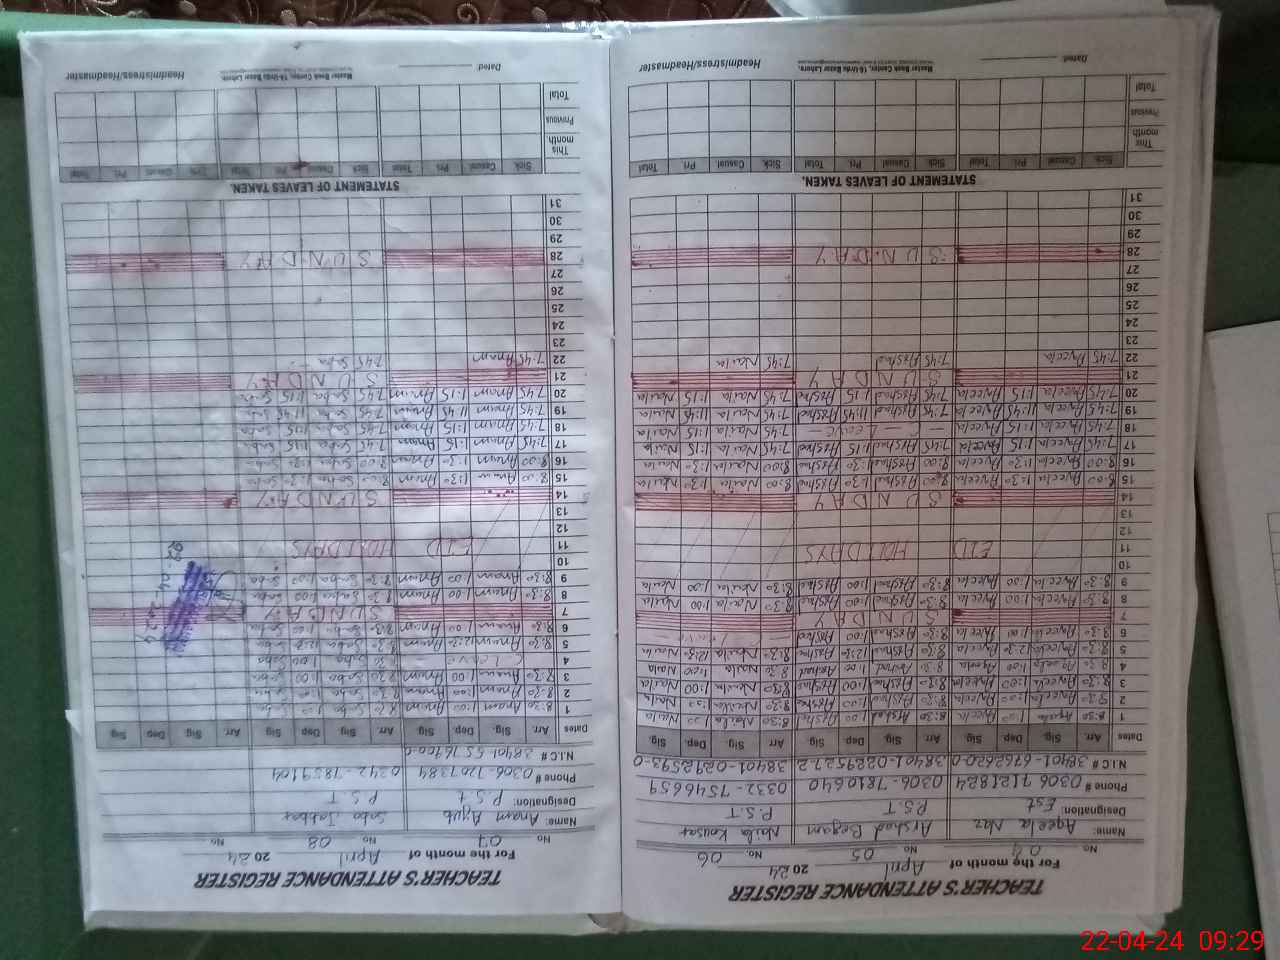 TEACHER'S ATTENDANCE REGISTER
For the month of April 2024
No. 04 No. 05 No. 06
Name: Aqeela Naz Arshad Begam Naila Kousar
Designation: Est P.S.T P.S.T
Phone # 0306 7121824 0306-7810640 0332-7546659
N.I.C # 38401-6762620-0 38401-0229527-2 38401-0292593-0
Dates Arr. Sig. Dep. Sig. Arr. Sig. Dep. Sig. Arr. Sig. Dep. Sig.
1 8:30 Aqeela 1:00 Aqeela 8:30 Arshad 1:00 Arshad 8:30 Naila 1:00 Naila
2 8:30 Aqeela 1:00 Aqeela 8:30 Arshad 1:00 Arshad 8:30 Naila 1:00 Naila
3 8:30 Aqeela 1:00 Aqeela 8:30 Arshad 1:00 Arshad 8:30 Naila 1:00 Naila
4 8:30 Aqeela 1:00 Aqeela 8:30 Arshad 1:00 Arshad 8:30 Naila 1:00 Naila
5 8:30 Aqeela 12:30 Aqeela 8:30 Arshad 12:30 Arshad 8:30 Naila 12:30 Naila
6 8:30 Aqeela 1:00 Aqeela 8:30 Arshad 1:00 Arshad — Leave —
7 SUNDAY
8 8:30 Aqeela 1:00 Aqeela 8:30 Arshad 1:00 Arshad 8:30 Naila 1:00 Naila
9 8:30 Aqeela 1:00 Aqeela 8:30 Arshad 1:00 Arshad 8:30 Naila 1:00 Naila
10
11 EID HOLIDAYS
12
13
14 SUNDAY
15 8:00 Aqeela 1:30 Aqeela 8:00 Arshad 1:30 Arshad 8:00 Naila 1:30 Naila
16 8:00 Aqeela 1:30 Aqeela 8:00 Arshad 1:30 Arshad 8:00 Naila 1:30 Naila
17 7:45 Aqeela 1:15 Aqeela 7:45 Arshad 1:15 Arshad 7:45 Naila 1:15 Naila
18 7:45 Aqeela 1:15 Aqeela — Leave — 7:45 Naila 1:15 Naila
19 7:45 Aqeela 11:45 Aqeela 7:45 Arshad 11:45 Arshad 7:45 Naila 11:45 Naila
20 7:45 Aqeela 1:15 Aqeela 7:45 Arshad 1:15 Arshad 7:45 Naila 1:15 Naila
21 SUNDAY
22 7:45 Aqeela 7:45 Arshad 7:45 Naila
23
24
25
26
27
28 SUNDAY
29
30
31
STATEMENT OF LEAVES TAKEN.
Sick. Casual. Pri. Total Sick. Casual. Pri. Total Sick. Casual. Pri. Total
This month.
Previous
Total
Dated: Master Book Centre, 16-Urdu Bazar Lahore. Headmistress/Headmaster
TEACHER'S ATTENDANCE REGISTER
For the month of April 2024
No. 07 No. 08 No.
Name: Anam Ayub Saba Jabbar
Designation: P.S.T P.S.T
Phone # 0306-7207384 0342-7859104
N.I.C #
Dates Arr. Sig. Dep. Sig. Arr. Sig. Dep. Sig. Arr. Sig. Dep. Sig.
1 8:30 Anam 1:00 Anam 8:30 Saba 1:00 Saba
2 8:30 Anam 1:00 Anam 8:30 Saba 1:00 Saba
3 8:30 Anam 1:00 Anam 8:30 Saba 1:00 Saba
4 C Leave 8:30 Saba 1:00 Saba
5 8:30 Anam 12:30 Anam 8:30 Saba 12:30 Saba
6 8:30 Anam 1:00 Anam 8:30 Saba 1:00 Saba
7 SUNDAY
8 8:30 Anam 1:00 Anam 8:30 Saba 1:00 Saba
9 8:30 Anam 1:00 Anam 8:30 Saba 1:00 Saba
10
11 EID HOLIDAYS
12
13
14 SUNDAY
15 8:00 Anam 1:30 Anam 8:00 Saba 1:30 Saba
16 8:00 Anam 1:30 Anam 8:00 Saba 1:30 Saba
17 7:45 Anam 1:15 Anam 7:45 Saba 1:15 Saba
18 7:45 Anam 1:15 Anam 7:45 Saba 1:15 Saba
19 7:45 Anam 11:45 Anam 7:45 Saba 11:45 Saba
20 7:45 Anam 1:15 Anam 7:45 Saba 1:15 Saba
21 SUNDAY
22 7:45 Anam 7:45 Saba
23
24
25
26
27
28 SUNDAY
29
30
31
STATEMENT OF LEAVES TAKEN.
Sick. Casual. Pri. Total Sick. Casual. Pri. Total Sick. Casual. Pri. Total
This month.
Previous
Total
Dated Master Book Centre, 16-Urdu Bazar Lahore. Headmistress/Headmaster
22-04-24 09:29